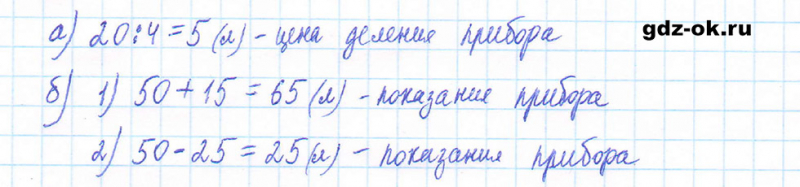 gdz-ok.ru
а) 20:4=5 (л) - цена деления прибора
б) 1) 50+15=65 (л) - показание прибора
2) 50-25=25 (л) - показания прибора